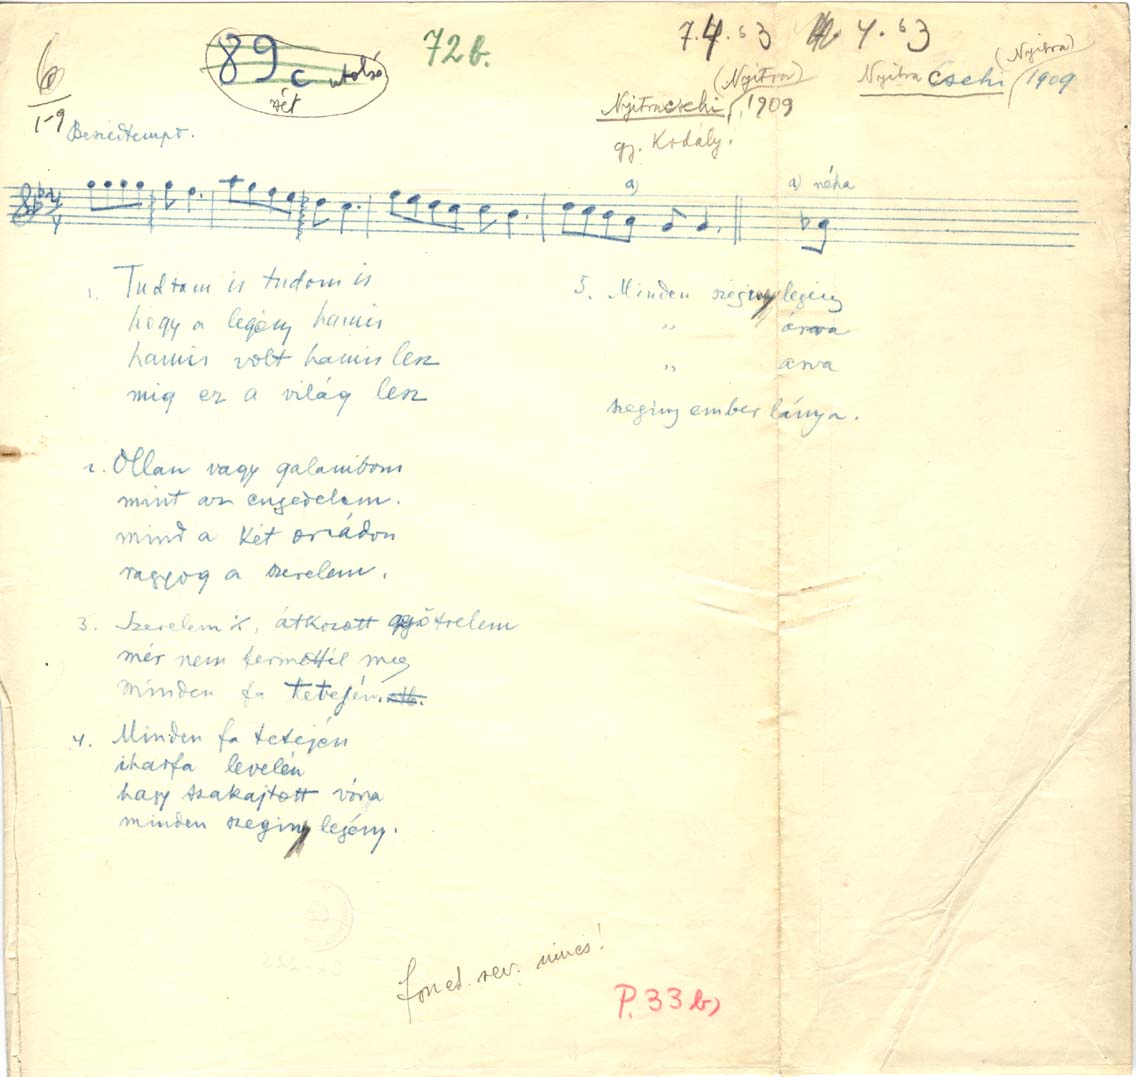 6
1-9
89 c utolsó
sét
72 b.
7.4.63
4.63
(Nyitra)
Nyitracsehi, 1909
gy. Kodály.
(Nyitra)
Nyitracsehi 1909
Beszédtempo.
a)
a) néha
1. Tudtam is tudom is
hogy a legény hamis
hamis volt hamis lesz
mig ez a világ lesz
2. Ollan vagy galambom
mint az engedelem.
mind a két orcádon
ragyog a szerelem.
3. Szerelem is, átkozott gyötrelem
mér nem termöttél meg
minden fa tetején.
4. Minden fa tetején
iharfa levelén
hagy szakajtott vóna
minden szeginy legény.
5. Minden szeginy legény
" árva
" árva
szeginy ember lánya.
fonet. rev. nincs!
P. 33 b)